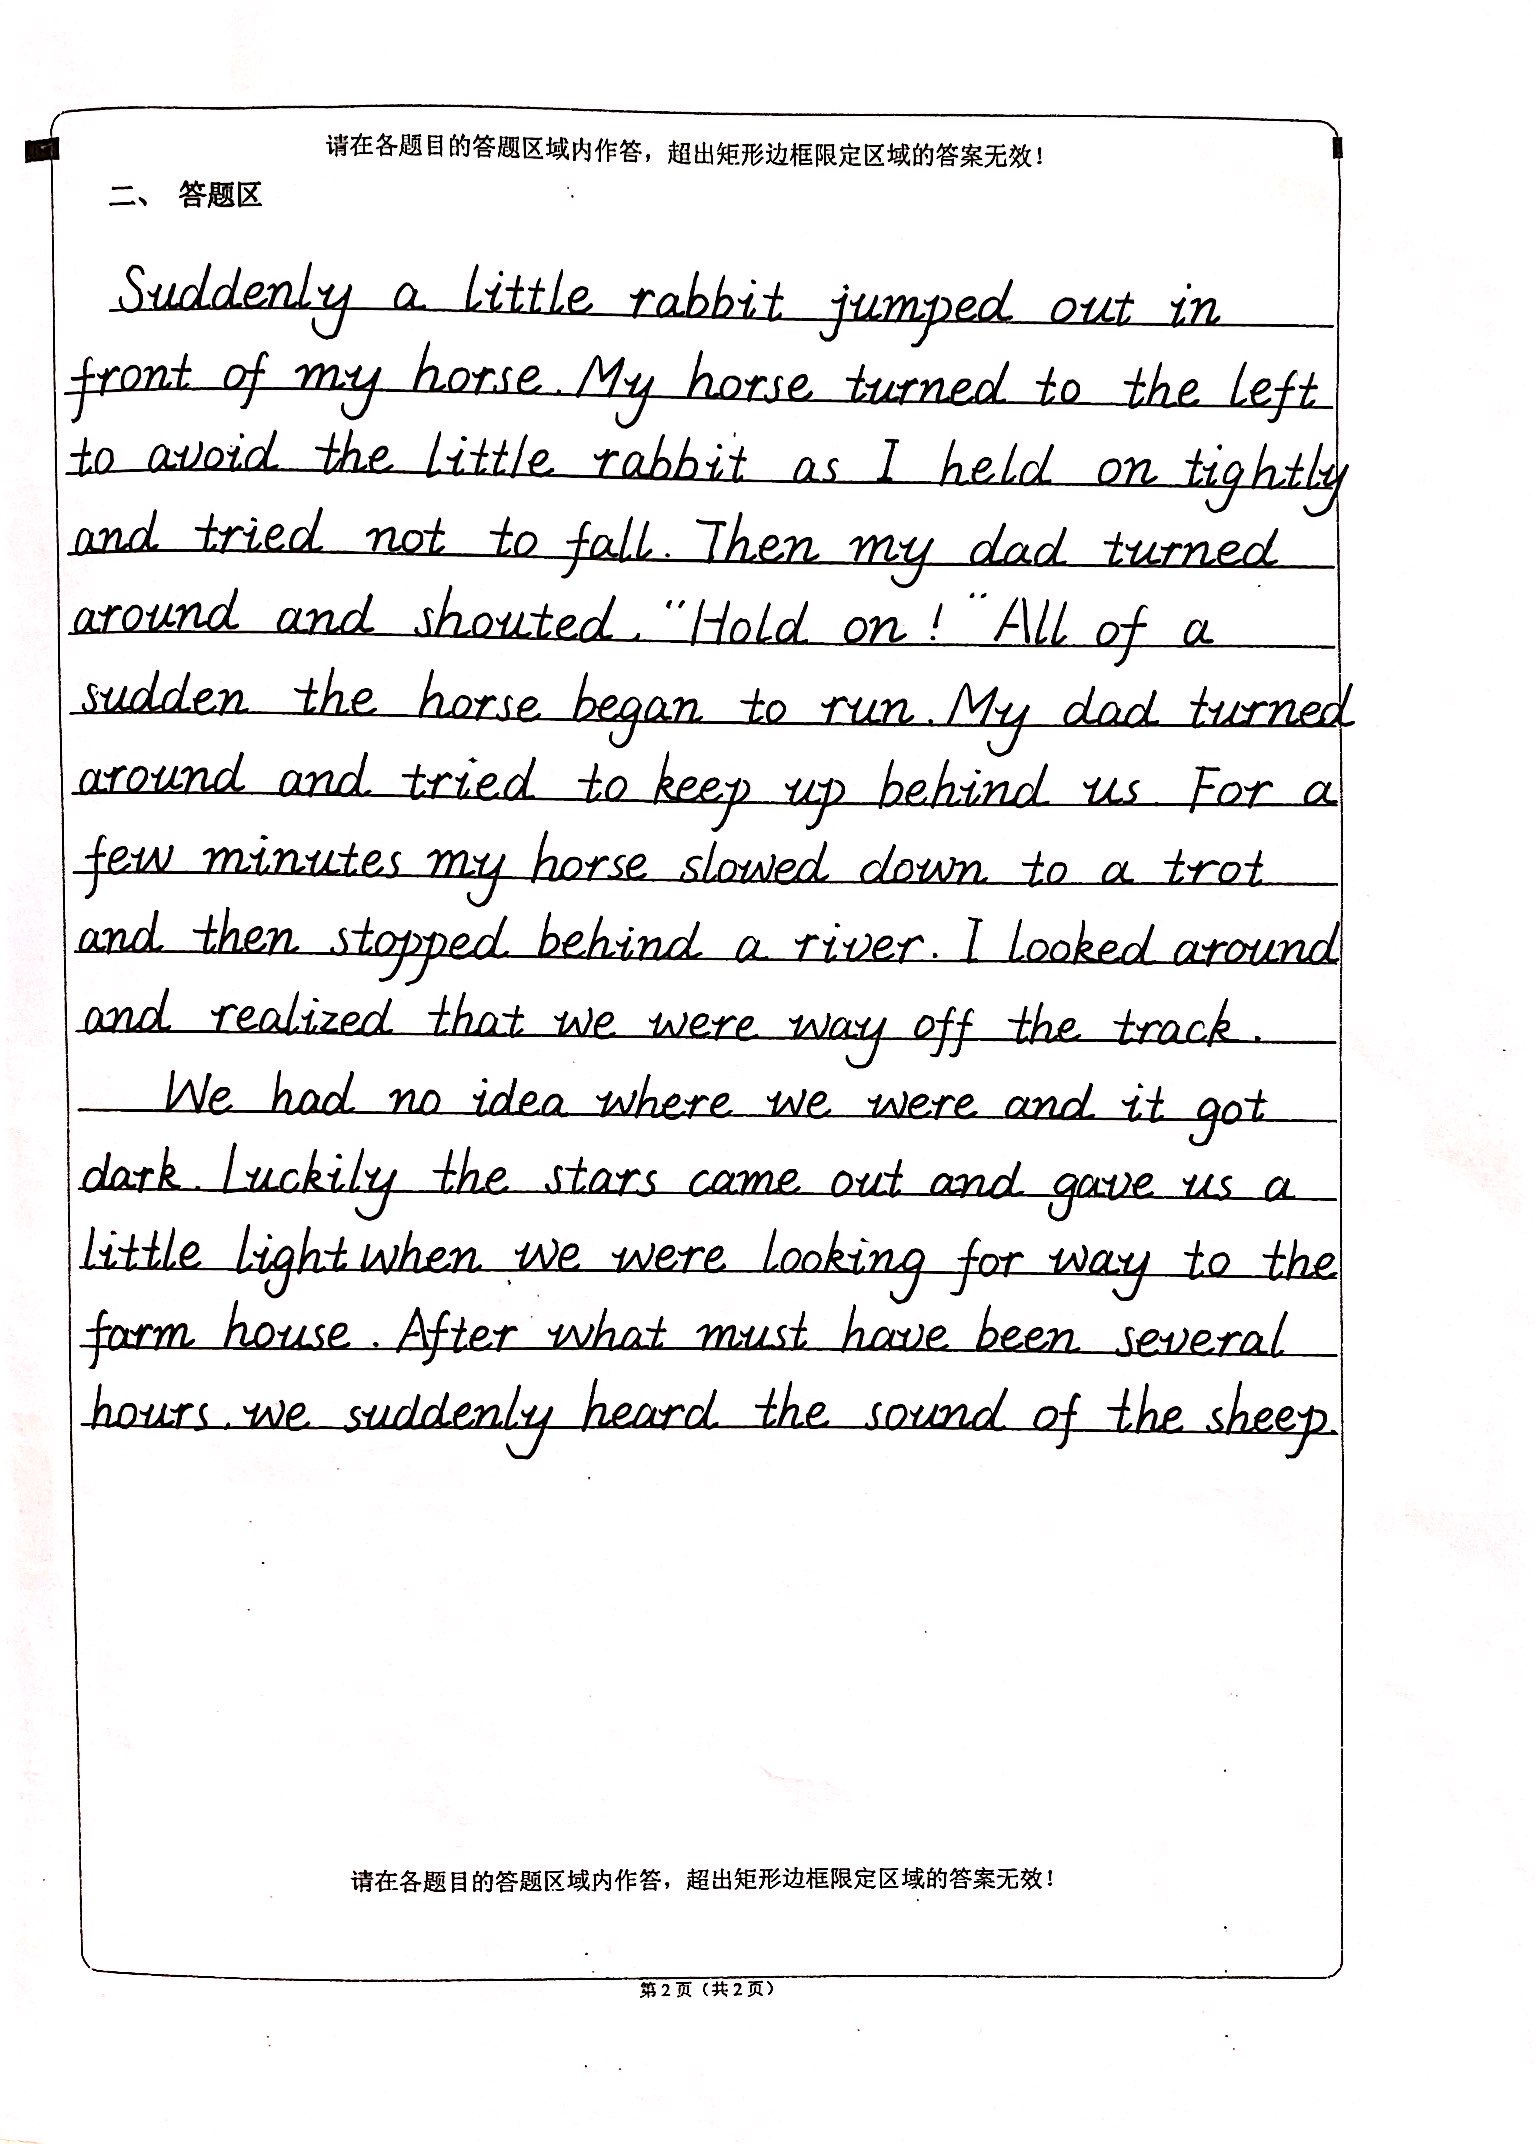 请在各题目的答题区域内作答，超出矩形边框限定区域的答案无效！
二、 答题区
Suddenly a little rabbit jumped out in
front of my horse. My horse turned to the left
to avoid the little rabbit as I held on tightly
and tried not to fall. Then my dad turned
around and shouted, "Hold on!" All of a
sudden the horse began to run. My dad turned
around and tried to keep up behind us. For a
few minutes my horse slowed down to a trot
and then stopped behind a river. I looked around
and realized that we were way off the track.
We had no idea where we were and it got
dark. Luckily the stars came out and gave us a
little light when we were looking for way to the
farm house. After what must have been several
hours, we suddenly heard the sound of the sheep.
请在各题目的答题区域内作答，超出矩形边框限定区域的答案无效！
第2页（共2页）